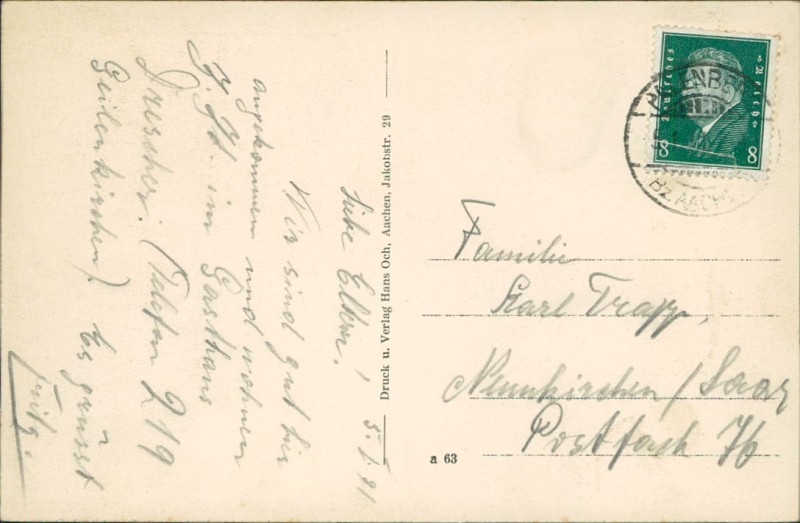 Liebe Eltern! 5.5.31
Wir sind gut hier
angekommen und wohnen
z. Zt. im Gasthaus
Drescher. (Telefon 219
Geilenkirchen). Es grüsst
Fritz.
Druck u. Verlag Hans Och, Aachen, Jakobstr. 29
a 63
Deutsches Reich
8 8
BZ AACH
Familie
Karl Trapp,
Neunkirchen / Saar
Postfach 76